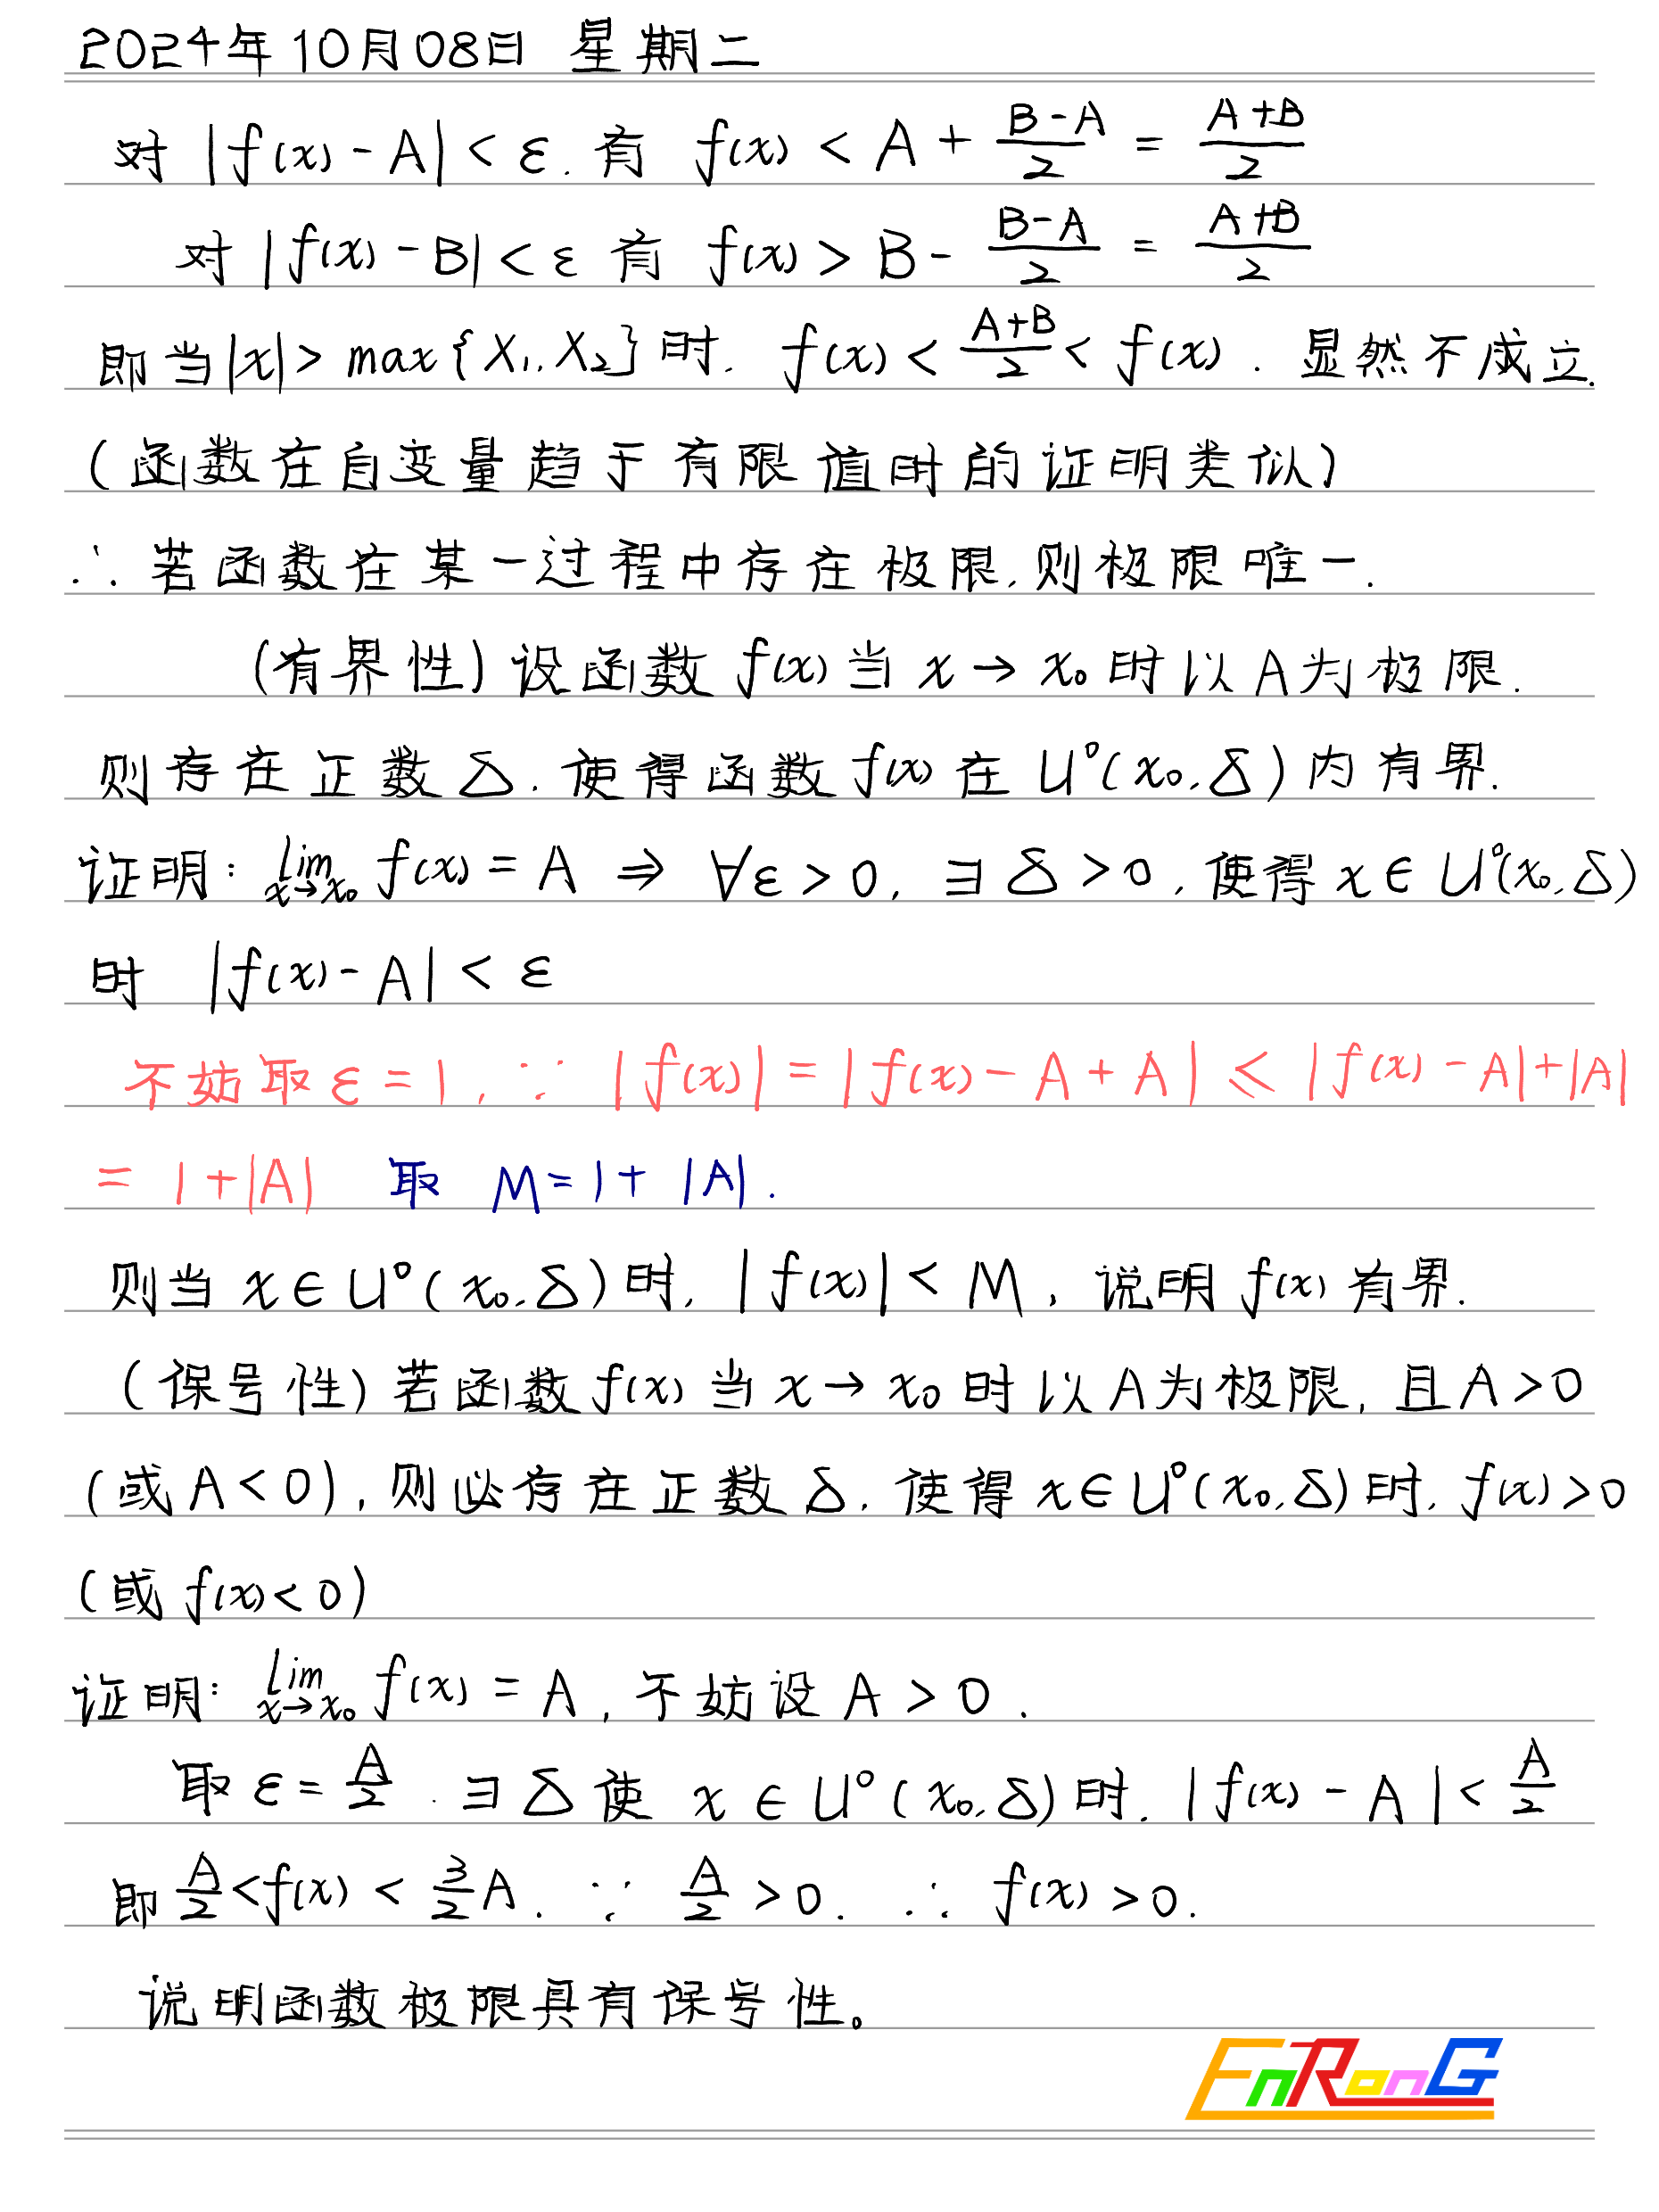 2024年10月08日 星期二
对 |f(x) - A| < ε. 有 f(x) < A + \frac{B-A}{2} = \frac{A+B}{2}
对 |f(x) - B| < ε 有 f(x) > B - \frac{B-A}{2} = \frac{A+B}{2}
即当|x| > max{X₁, X₂}时. f(x) < \frac{A+B}{2} < f(x). 显然不成立.
(函数在自变量趋于有限值时的证明类似)
∴ 若函数在某一过程中存在极限,则极限唯一.
(有界性) 设函数 f(x) 当 x → x₀ 时以A为极限.
则存在正数δ. 使得函数f(x) 在 U°(x₀,δ)内有界.
证明: \lim_{x→x₀} f(x) = A ⇒ ∀ε > 0, ∃ δ > 0, 使得 x ∈ U°(x₀,δ)
时 |f(x) - A| < ε
不妨取ε = 1, ∵ |f(x)| = |f(x) - A + A| ≤ |f(x) - A|+|A|
= 1+|A| 取 M = 1+ |A|.
则当 x ∈ U°(x₀,δ)时, |f(x)| < M, 说明 f(x) 有界.
(保号性) 若函数f(x) 当 x → x₀ 时以A为极限, 且A > 0
(或A < 0), 则必存在正数δ, 使得 x ∈ U°(x₀,δ)时, f(x) > 0
(或 f(x) < 0)
证明: \lim_{x→x₀} f(x) = A, 不妨设 A > 0.
取 ε = \frac{A}{2}. ∃ δ 使 x ∈ U°(x₀,δ)时. |f(x) - A| < \frac{A}{2}
即 \frac{A}{2} < f(x) < \frac{3}{2}A. ∵ \frac{A}{2} > 0. ∴ f(x) > 0.
说明函数极限具有保号性。
EnRonG